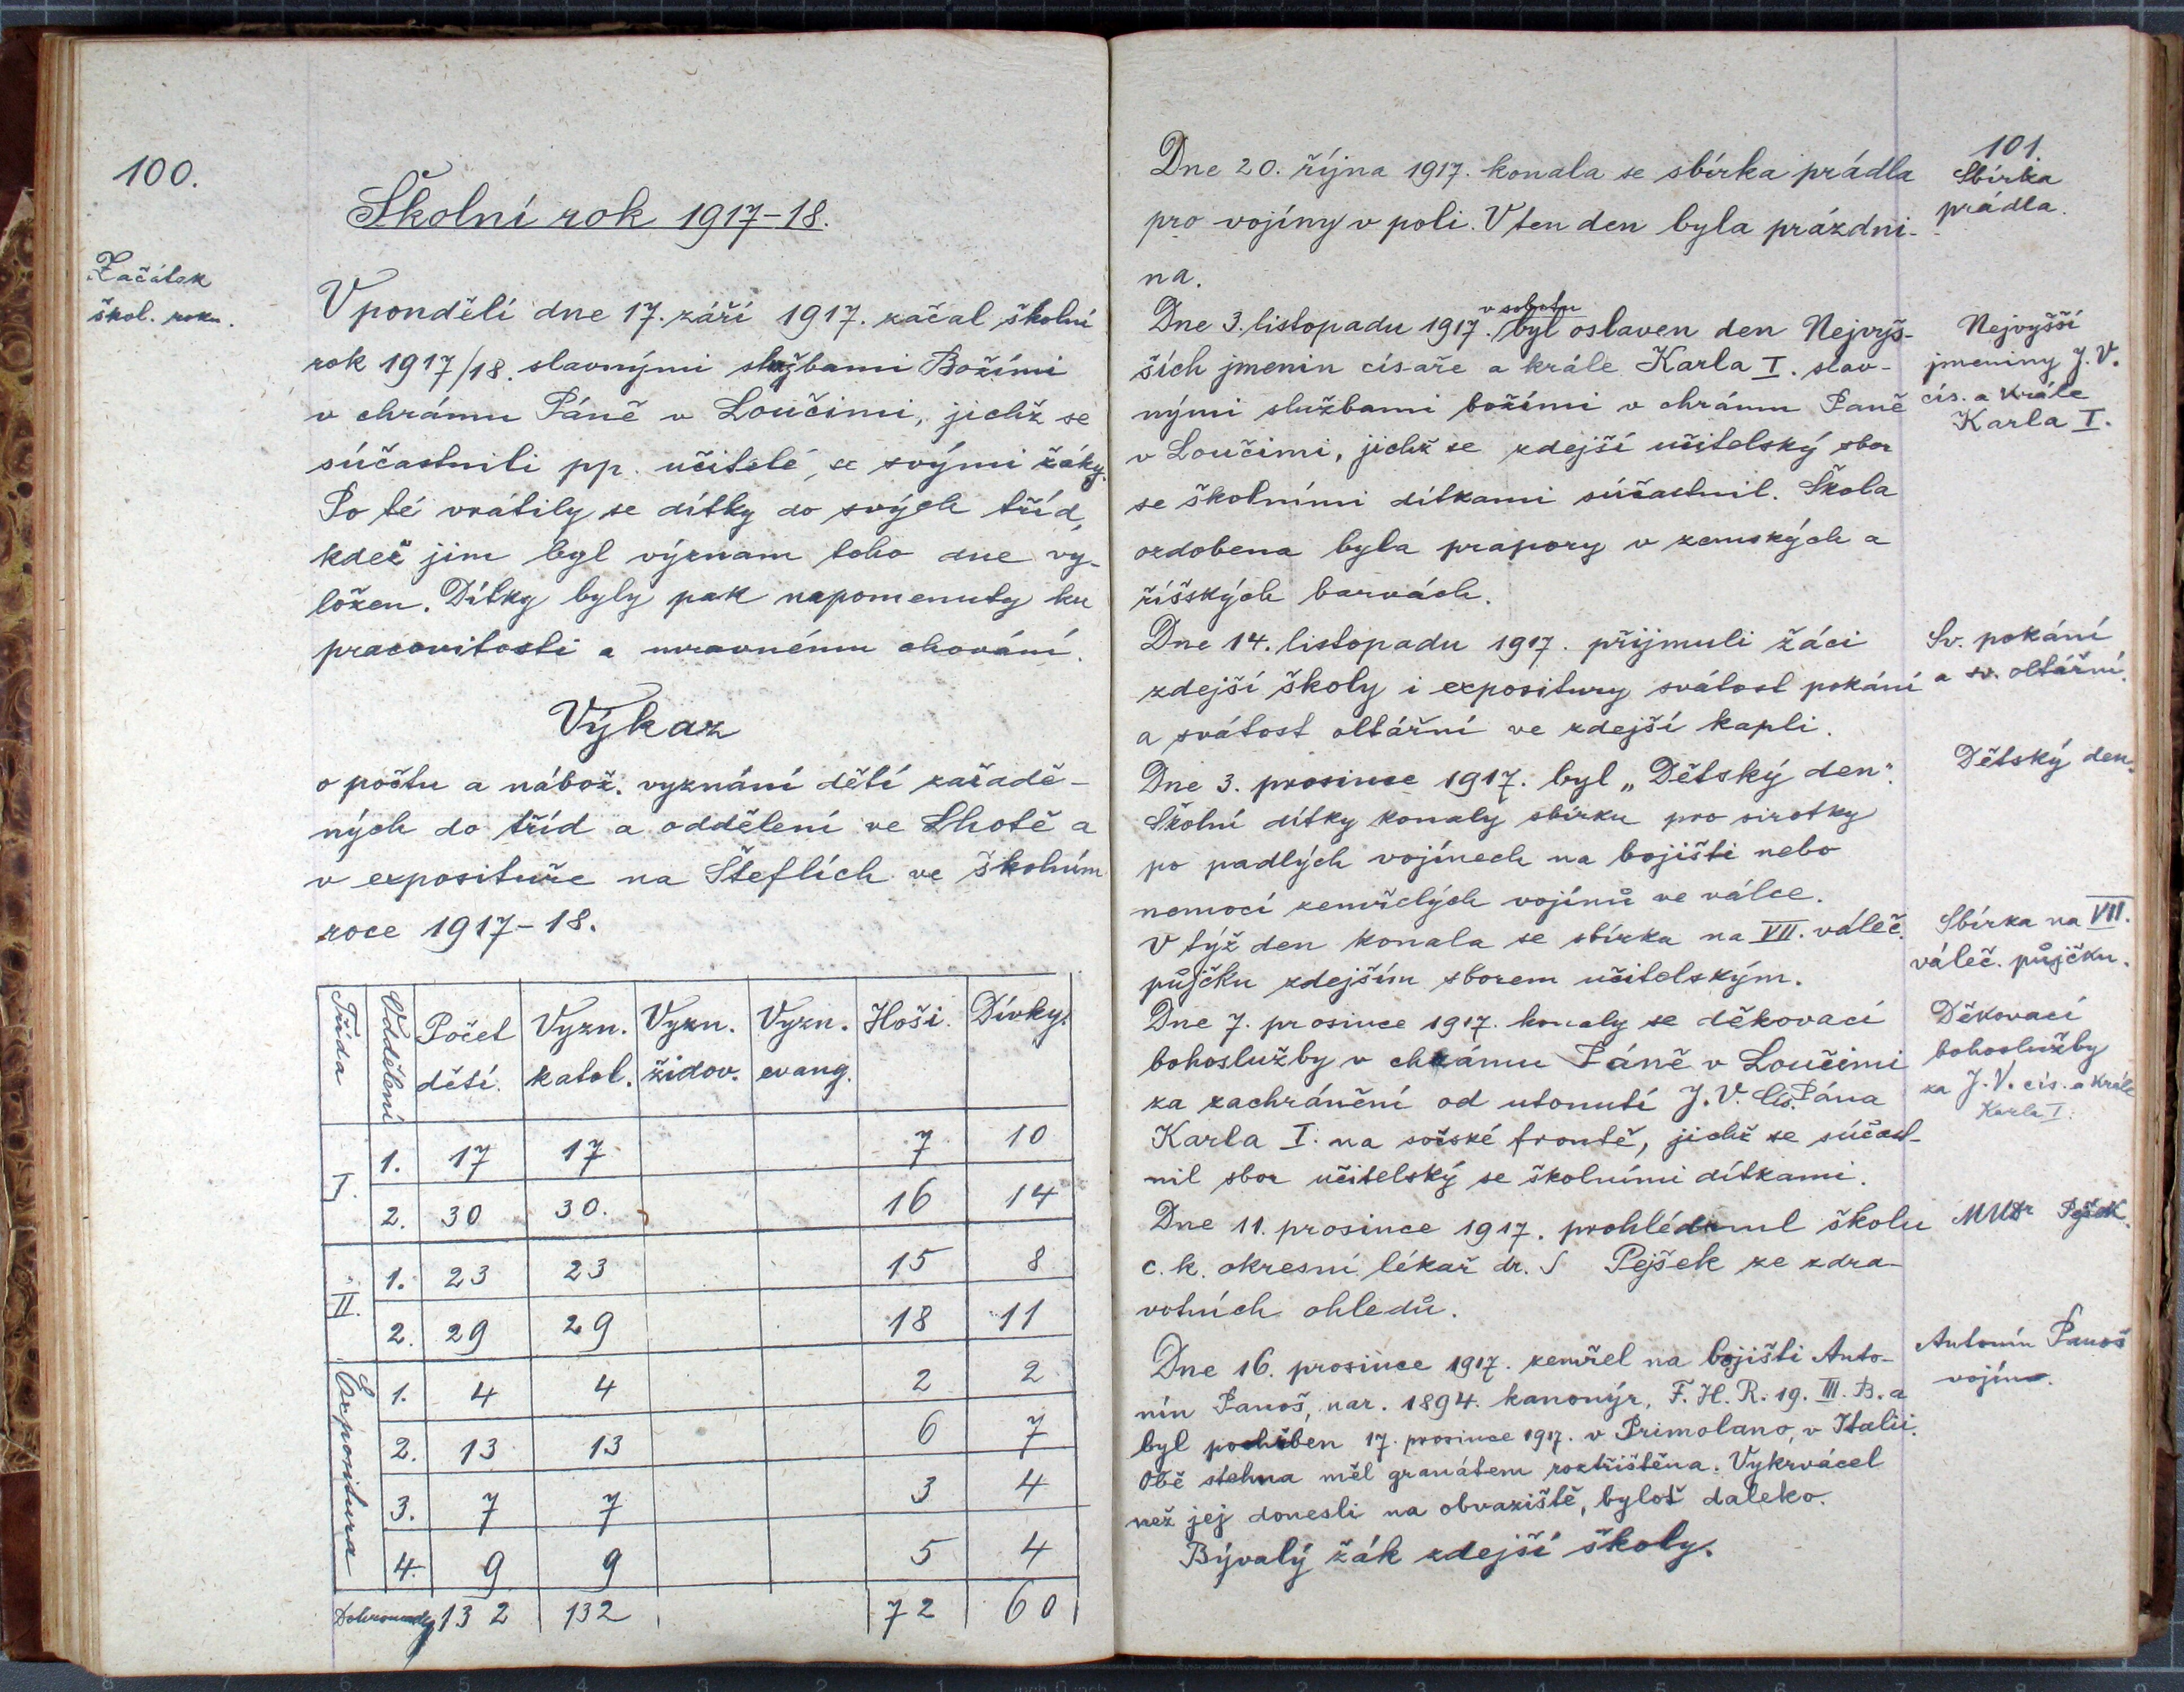 100.
Školní rok 1917-18.
Začátek
škol. roku.
V pondělí dne 17. září 1917. začal školní
rok 1917/18. slavnými službami Božími
v chrámu Páně v Loučimi, jichž se
súčastnili pp. učitelé se svými žáky.
Po té vrátily se dítky do svých tříd,
kdež jim byl význam toho dne vy-
ložen. Dítky byly pak napomenuty ku
pracovitosti a mravnému chování.
Výkaz
o počtu a nábož. vyznání dětí zařadě-
ných do tříd a oddělení ve Lhotě a
v expositуře na Šteflích ve školním
roce 1917-18.
Třída Oddělení Počet dětí. Vyzn. katol. Vyzn. židov. Vyzn. evang. Hoši. Dívky.
I. 1. 17 17 7 10
2. 30 30. 16 14
II. 1. 23 23 15 8
2. 29 29 18 11
Expositura 1. 4 4 2 2
2. 13 13 6 7
3. 7 7 3 4
4. 9 9 5 4
Dohromady 132 132 72 60
101.
Dne 20. října 1917. konala se sbírka prádla
pro vojíny v poli. V ten den byla prázdni-
na.
Sbírka
prádla.
v sobotu
Dne 3. listopadu 1917. byl oslaven den Nejvyš-
ších jmenin císaře a krále Karla I. slav-
nými službami božími v chrámu Páně
v Loučimi, jichž se zdejší učitelský sbor
se školními dítkami súčastnil. Škola
ozdobena byla prapory v zemských a
říšských barvách.
Nejvyšší
jmeniny J. V.
cís. a krále
Karla I.
Dne 14. listopadu 1917. přijmuli žáci
zdejší školy i expositury svátost pokání
a svátost oltářní ve zdejší kapli.
Sv. pokání
a sv. oltářní.
Dne 3. prosince 1917. byl „Dětský den“.
Školní dítky konaly sbírku pro sirotky
po padlých vojínech na bojišti nebo
nemocí zemřelých vojínů ve válce.
Dětský den.
V týž den konala se sbírka na VII. váleč.
půjčku zdejším sborem učitelským.
Sbírka na VII.
váleč. půjčku.
Dne 7. prosince 1917. konaly se děkovací
bohoslužby v chrámu Páně v Loučimi
za zachránění od utonutí J. V. Cís. Pána
Karla I. na sočské frontě, jichž se súčast-
nil sbor učitelský se školními dítkami.
Děkovací
bohoslužby
za J. V. cís. a krále
Karla I.
Dne 11. prosince 1917. prohlédnul školu
c. k. okresní lékař dr. J Pejšek ze zdra-
votních ohledů.
MUDr Pejšek.
Dne 16. prosince 1917. zemřel na bojišti Anto-
nín Panoš, nar. 1894. kanonýr, F. H. R. 19. III. B. a
byl pochřben 17. prosince 1917. v Primolano, v Italii.
Obě stehna měl granátem roztříštěna. Vykrvácel
než jej donesli na obvaziště, byloť daleko.
Bývalý žák zdejší školy.
Antonín Panoš
vojín.